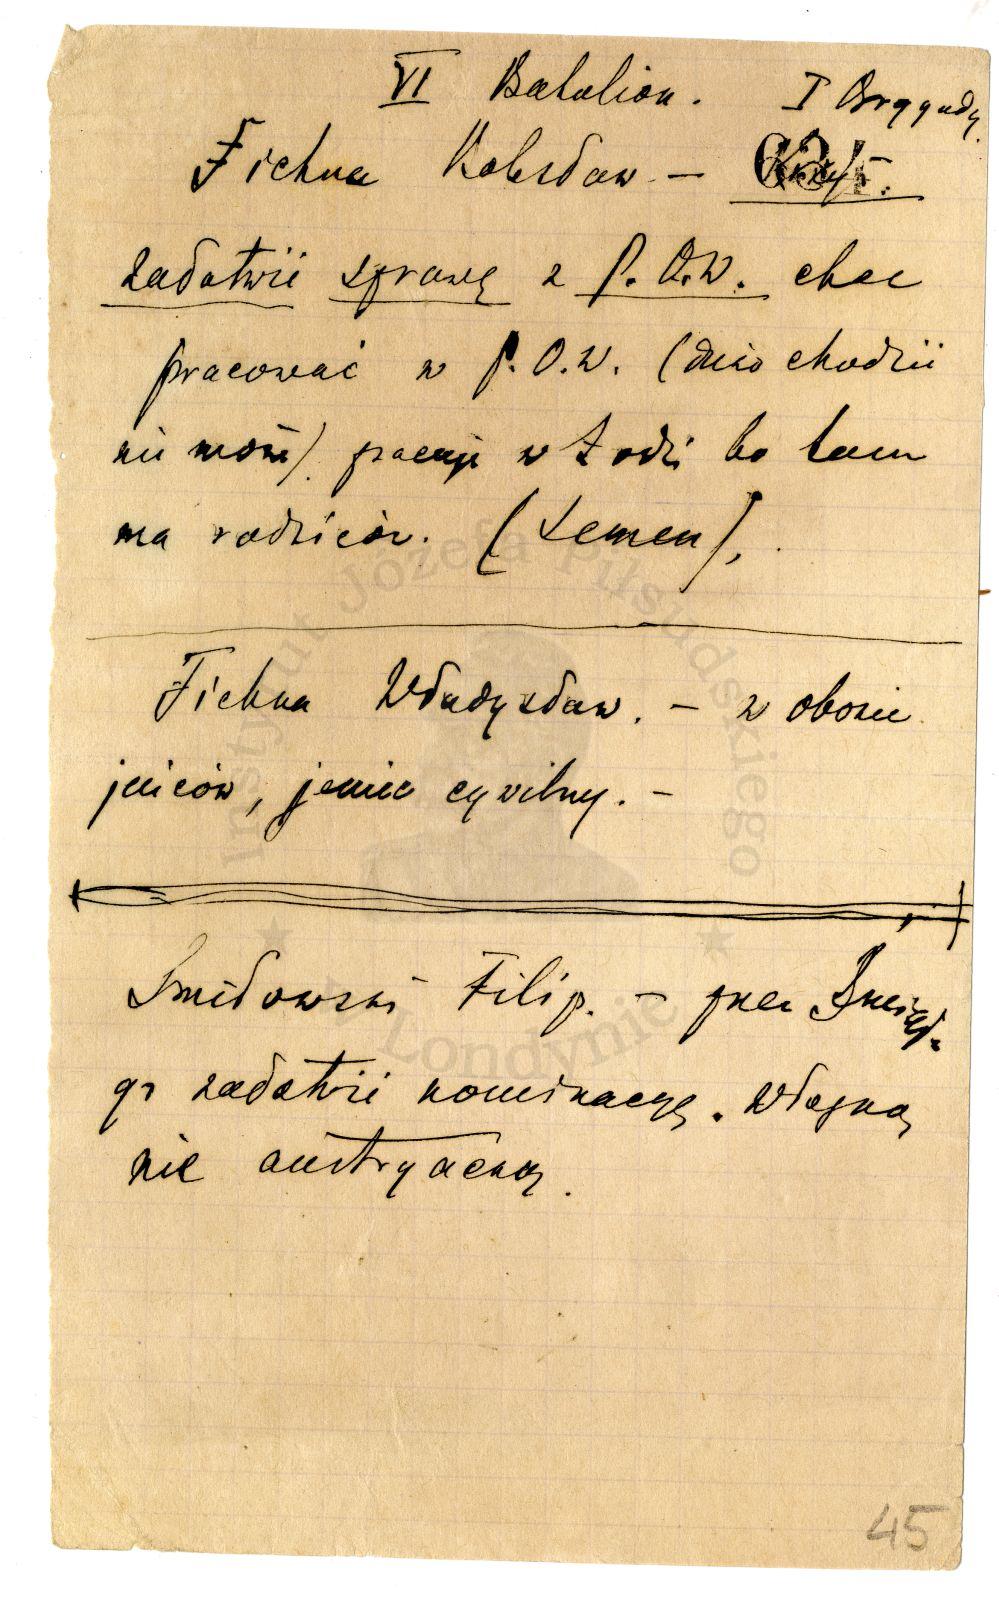 VI Batalion. I Brygady
Fichna Bolesław —
załatwić sprawę z P.O.W. chce
pracować w P.O.W. (dużo chodzić
nie może) pracuje w Łodzi bo tam
ma rodziców. (Lemen),
Fichna Władysław. — w obozie
jeńców, jeniec cywilny. —
Filip. — przez
załatwić nominacyę. Własną
nie austryacką.
45
Instytut Józefa Piłsudskiego
w Londynie